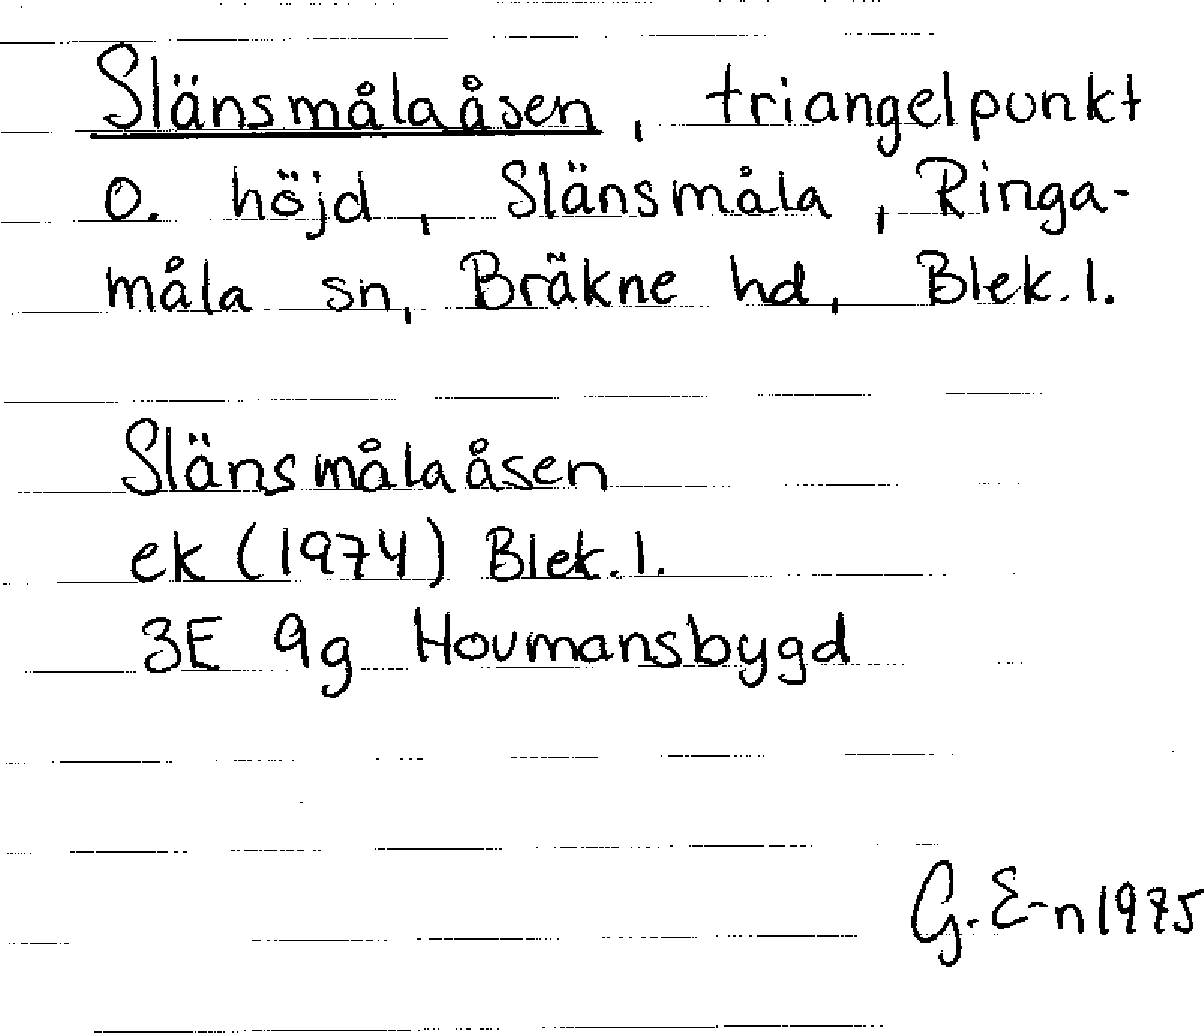 Slänsmålaåsen, triangelpunkt
o. höjd, Slänsmåla, Ringa-
måla sn, Bräkne hd, Blek. l.
Slänsmålaåsen
ek (1974) Blek. l.
3E 9g Hovmansbygd
G. E-n 1975